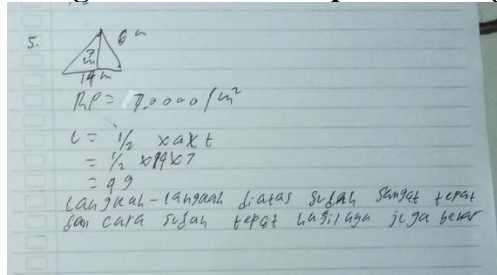 5.
8 m
7 m
14 m
RP = 17.0000/m²
L = 1/2 x a x t
= 1/2 x 14 x 7
= 49
Langkah-langkah diatas sudah sangat tepat
dan cara sudah tepat hasilnya juga benar